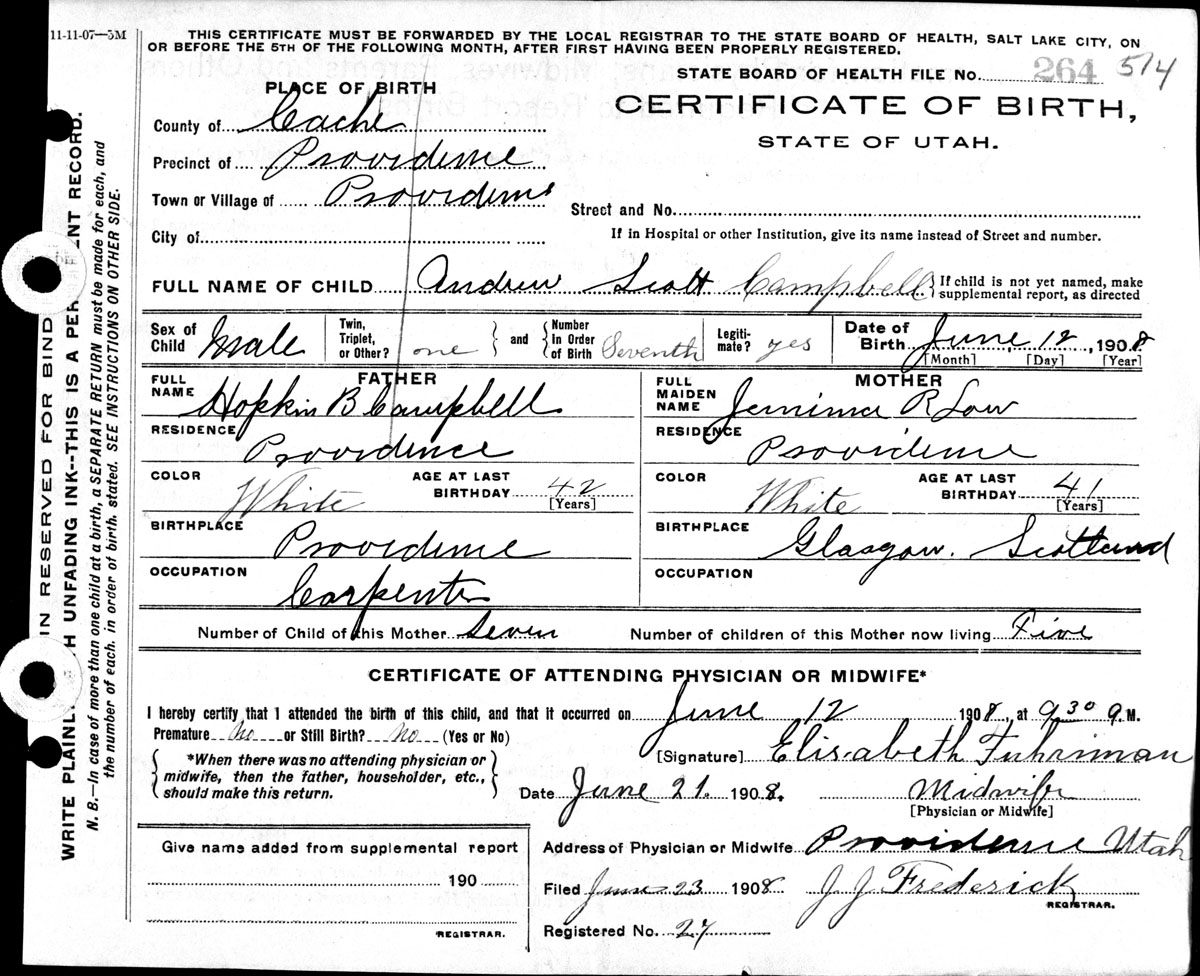 11-11-07—5M
THIS CERTIFICATE MUST BE FORWARDED BY THE LOCAL REGISTRAR TO THE STATE BOARD OF HEALTH, SALT LAKE CITY, ON
OR BEFORE THE 5TH OF THE FOLLOWING MONTH, AFTER FIRST HAVING BEEN PROPERLY REGISTERED.
STATE BOARD OF HEALTH FILE No. 264 514
PLACE OF BIRTH
CERTIFICATE OF BIRTH,
STATE OF UTAH.
County of Cache
Precinct of Providence
Town or Village of Providence
Street and No.
City of
If in Hospital or other Institution, give its name instead of Street and number.
FULL NAME OF CHILD Andrew Scott Campbell { If child is not yet named, make
supplemental report, as directed
Sex of Child Male
Twin, Triplet, or Other? one } and { Number In Order of Birth Seventh
Legiti-mate? yes
Date of Birth June 12, 1908
[Month] [Day] [Year]
FATHER
FULL NAME Hopkin B Campbell
RESIDENCE Providence
COLOR White AGE AT LAST BIRTHDAY 42 [Years]
BIRTHPLACE Providence
OCCUPATION Carpenter
MOTHER
FULL MAIDEN NAME Jemima R Low
RESIDENCE Providence
COLOR White AGE AT LAST BIRTHDAY 41 [Years]
BIRTHPLACE Glasgow. Scotland
OCCUPATION
Number of Child of this Mother Seven Number of children of this Mother now living Five
CERTIFICATE OF ATTENDING PHYSICIAN OR MIDWIFE*
I hereby certify that I attended the birth of this child, and that it occurred on June 12 1908, at 9 30 a. M.
Premature No or Still Birth? No (Yes or No)
[Signature] Elisabeth Fuhriman
*When there was no attending physician or
midwife, then the father, householder, etc.,
should make this return.
Date June 21. 1908. Midwife
[Physician or Midwife]
Give name added from supplemental report
190
REGISTRAR.
Address of Physician or Midwife Providence Utah
Filed June 23 1908 J J Frederick
REGISTRAR.
Registered No. 27
IN RESERVED FOR BIND
WRITE PLAINL H UNFADING INK--THIS IS A PER ENT RECORD.
N. B.—In case of more than one child at a birth, a SEPARATE RETURN must be made for each, and
the number of each. in order of birth, stated. SEE INSTRUCTIONS ON OTHER SIDE.